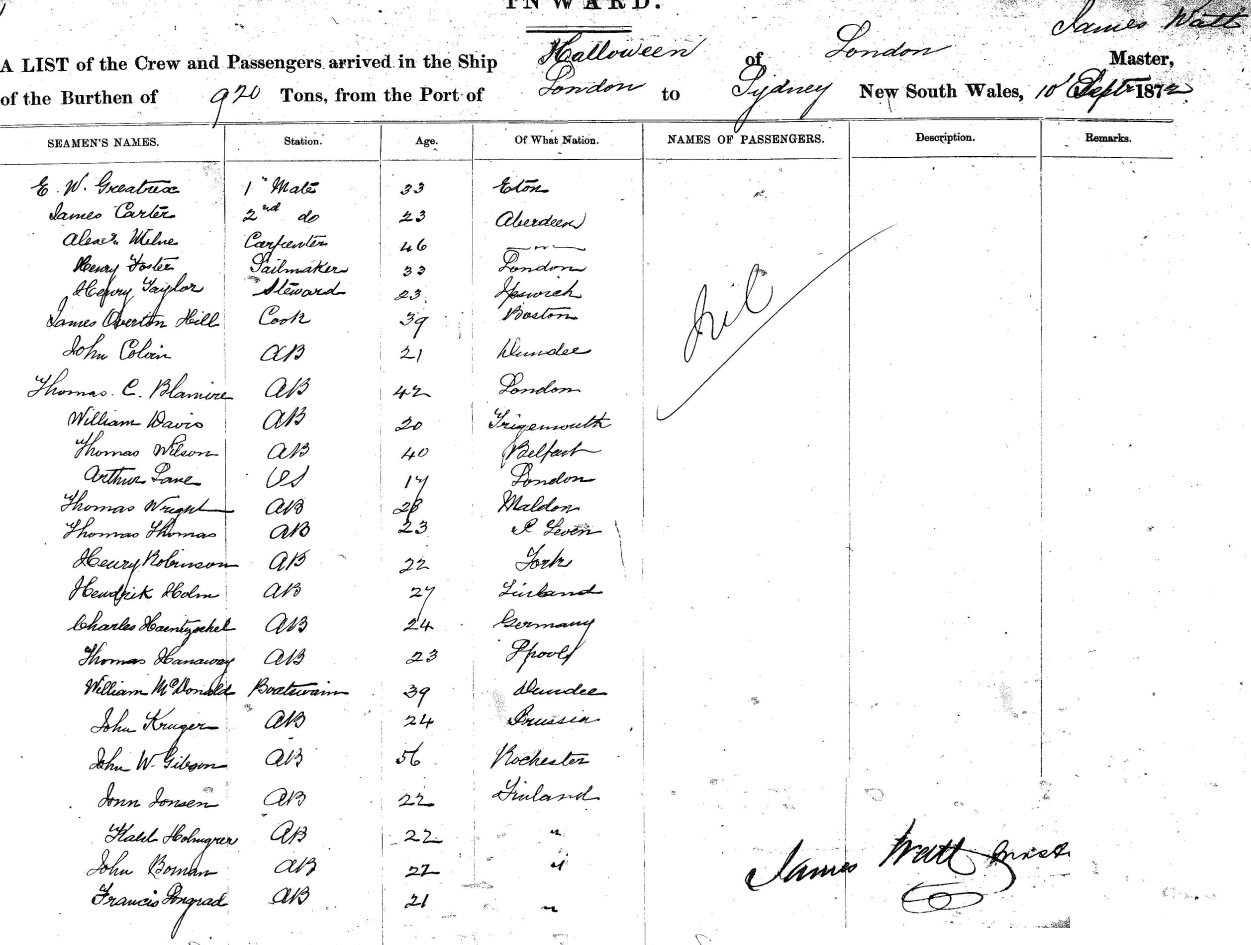 INWARD.
James Watt
A LIST of the Crew and Passengers arrived in the Ship Halloween of London Master,
of the Burthen of 920 Tons, from the Port of London to Sydney New South Wales, 10 Sept 1872
SEAMEN'S NAMES. Station. Age. Of What Nation. NAMES OF PASSENGERS. Description. Remarks.
E. W. Greatrex 1st Mate 33 Eton
James Carter 2nd do 23 Aberdeen
Alexr. Milne Carpenter 46 — " —
Henry Foster Sailmaker 33 London
Henry Taylor Steward 23 Ipswich
James Overton Hill Cook 39 Boston
nil
John Colvin AB 21 Dundee
Thomas C. Blamire AB 42 London
William Davis AB 20
Thomas Wilson AB 40 Belfast
Arthur Lane OS 17 London
Thomas Wright AB 28 Maldon
Thomas Thomas AB 23
Henry Robinson AB 22 York
Hendrick Holm AB 27 Finland
Charles AB 24 Germany
Thomas Hanaway AB 23 Lpool
William McDonald Boatswain 39 Dundee
John Kruger AB 24 Prussia
John W. Gibson AB 56 Rochester
Jonn Jonsen AB 22 Finland
Holmgrer AB 22 "
John Boman AB 22 "
Francis AB 21 "
James Watt